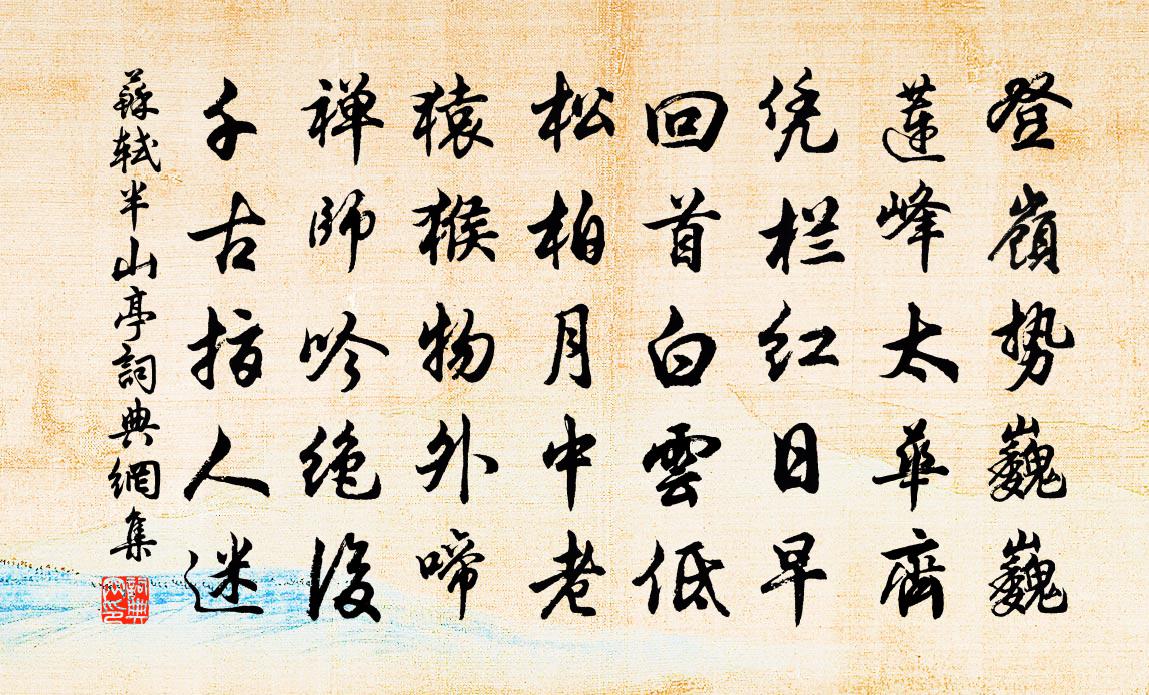 登嶺势巍巍
蓮峰太華齊
凭栏红日早
回首白雲低
松柏月中老
猿猴物外啼
禅師吟绝後
千古指人迷
蘇轼半山亭詞典網集